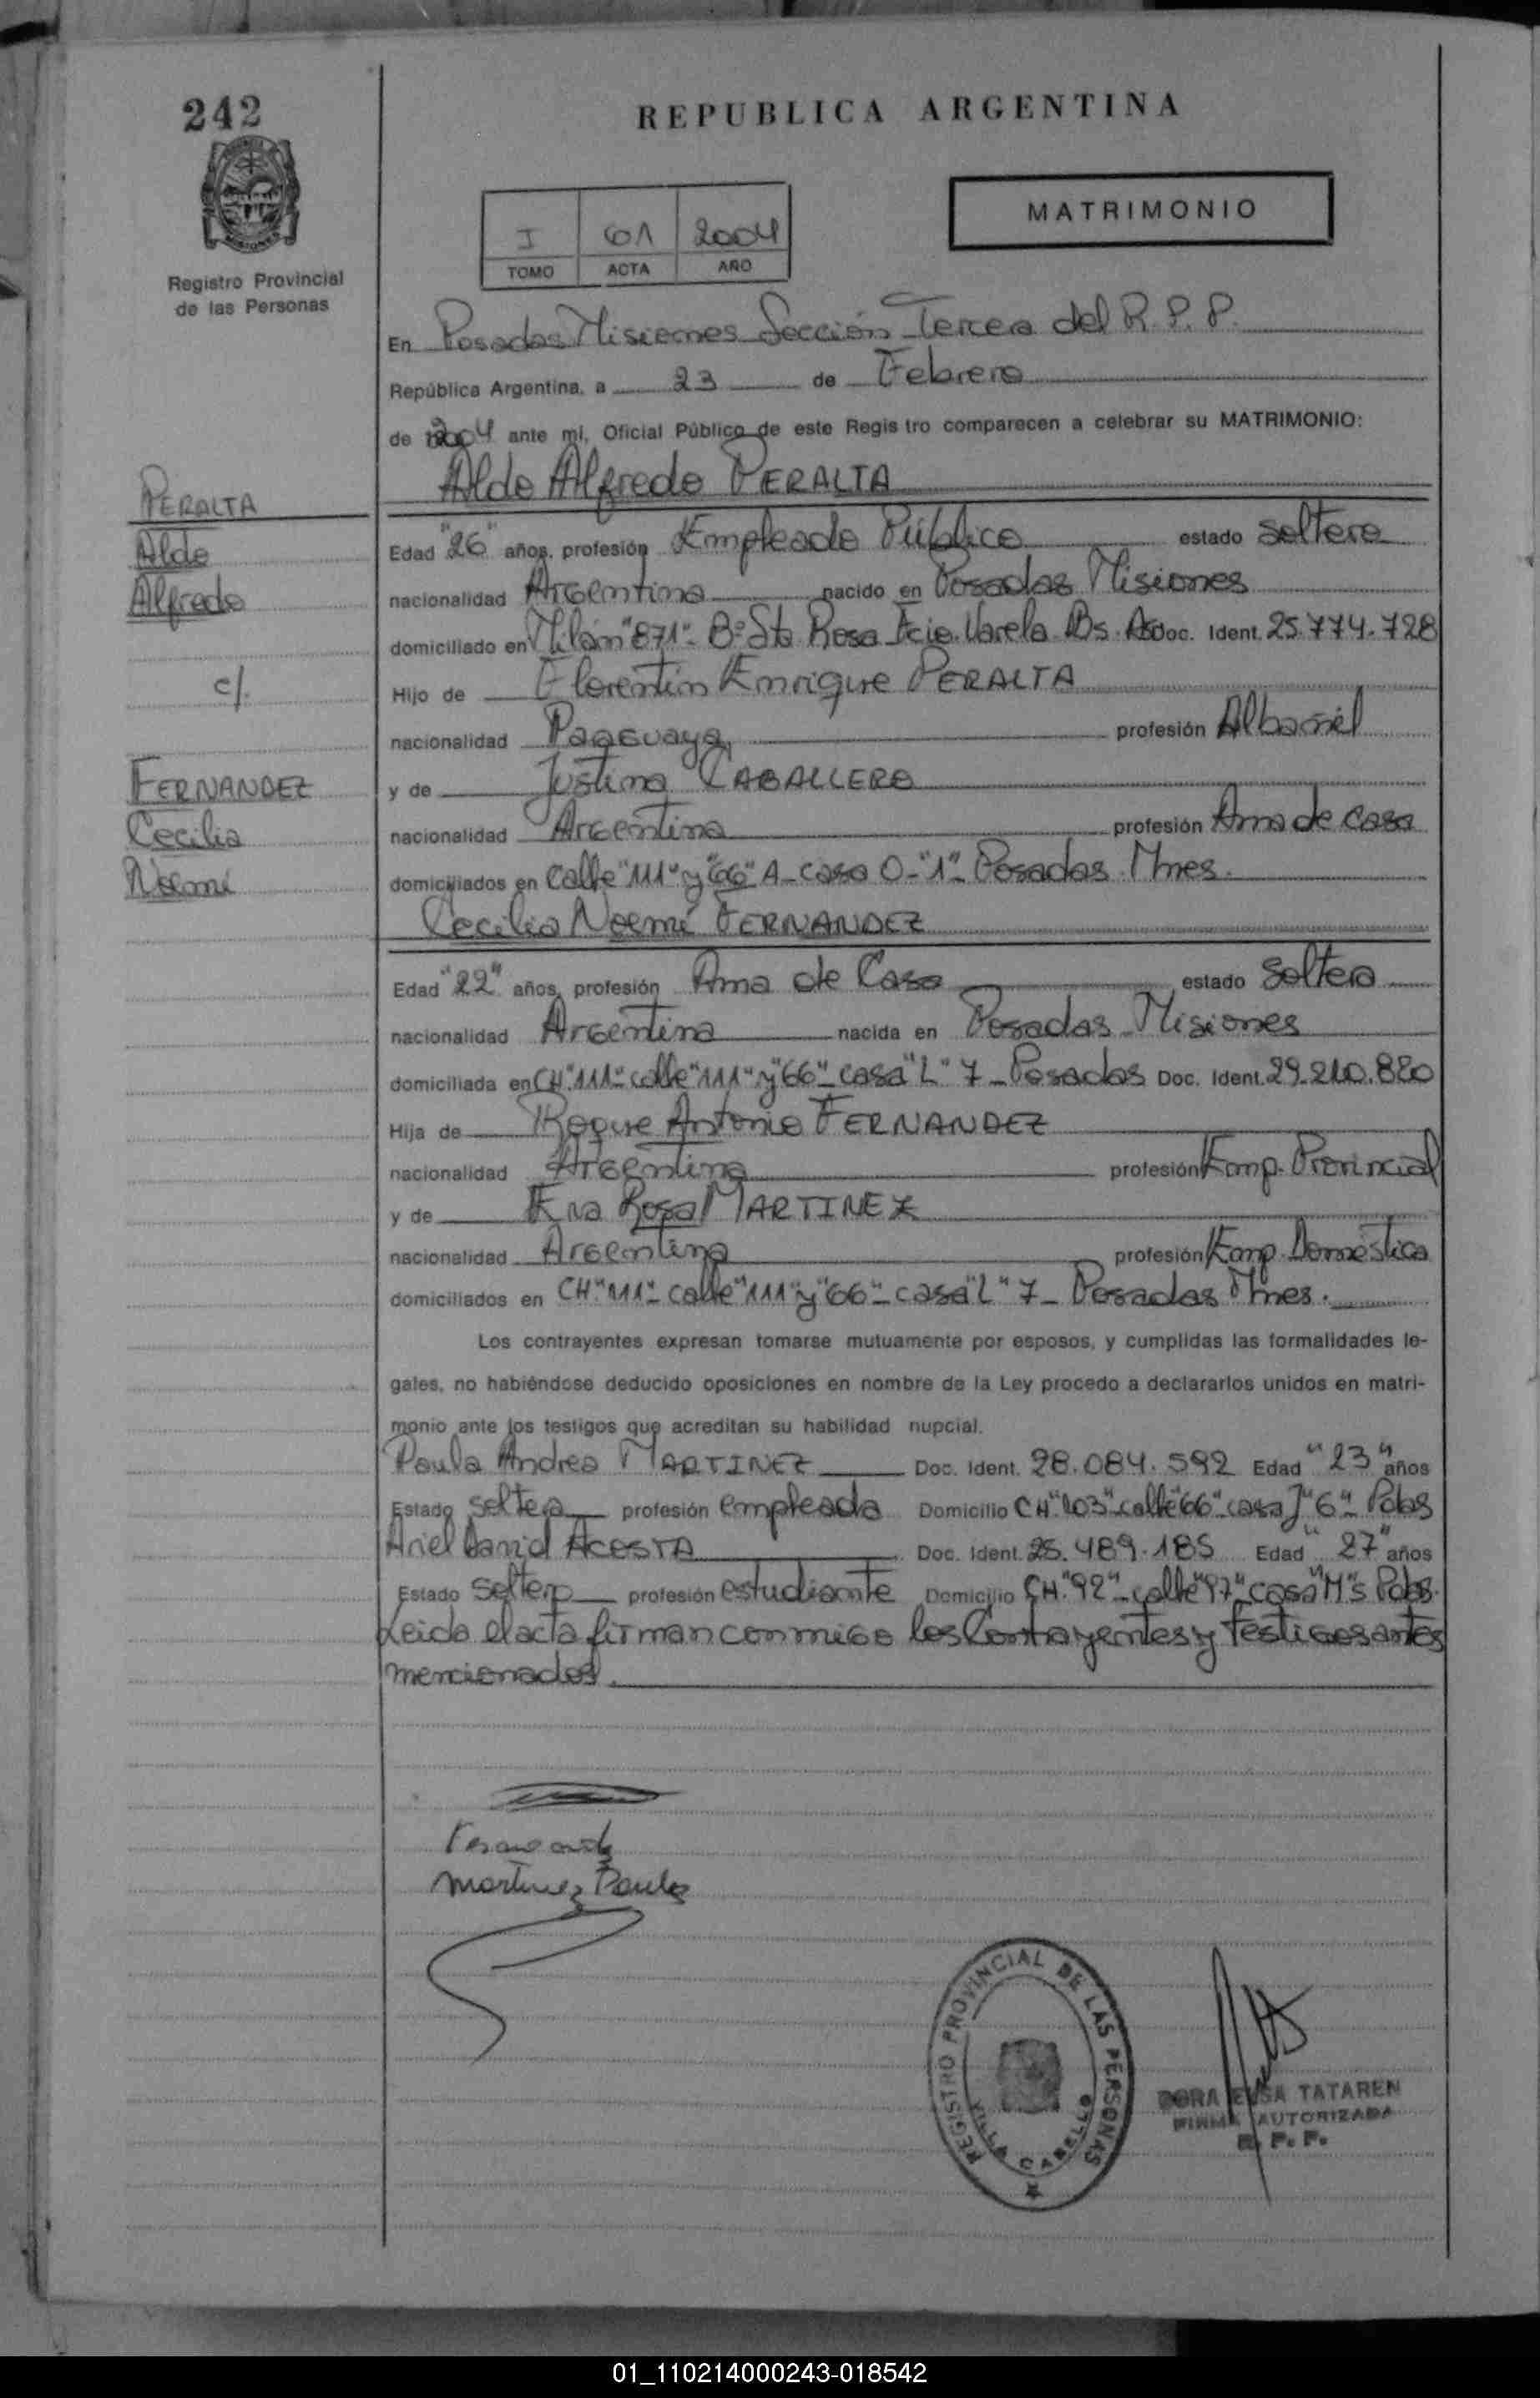 242
REPUBLICA ARGENTINA
MATRIMONIO
I 61 2004
TOMO ACTA AÑO
Registro Provincial
de las Personas
En Posadas Misiones Sección Tercera del R.P.P.
República Argentina, a 23 de Febrero
de 2004 ante mi, Oficial Público de este Regis tro comparecen a celebrar su MATRIMONIO:
Aldo Alfredo PERALTA
PERALTA
Aldo
Alfredo
c/.
FERNANDEZ
Cecilia
Noemí
Edad "26" años, profesión Empleado Público estado soltero
nacionalidad Argentina nacido en Posadas Misiones
domiciliado en Milán "871"- B° Sta Rosa Fcio. Varela Bs. As Doc. Ident. 25.774.728
Hijo de Florentin Enrique PERALTA
nacionalidad Paraguaya profesión Albañil
y de Justina CABALLERO
nacionalidad Argentina profesión Ama de casa
domiciliados en calle "111" y "66" A- casa O-"1"- Posadas Mnes.
Cecilia Noemí FERNANDEZ
Edad "22" años, profesión Ama de Casa estado soltera
nacionalidad Argentina nacida en Posadas Misiones
domiciliada en CH."111"- calle "111" y "66"- casa "L" 7- Posadas Doc. Ident. 29.210.820
Hija de Roque Antonio FERNANDEZ
nacionalidad Argentina profesión Emp. Provincial
y de Eva Rosa MARTINEZ
nacionalidad Argentina profesión Emp. Doméstica
domiciliados en CH."111"- calle "111" y "66"- casa "L" 7- Posadas Mnes.
Los contrayentes expresan tomarse mutuamente por esposos, y cumplidas las formalidades le-
gales, no habiéndose deducido oposiciones en nombre de la Ley procedo a declararlos unidos en matri-
monio ante los testigos que acreditan su habilidad nupcial.
Paula Andrea MARTINEZ Doc. Ident. 28.084.592 Edad "23" años
Estado soltera profesión empleada Domicilio CH "103"- calle "66"- casa J "6"- Pdas
Ariel David ACOSTA Doc. Ident. 25.489.185 Edad "27" años
Estado soltero profesión estudiante Domicilio CH."92"- calle "97"- casa "M" 5 Pdas.
Leida el acta firman conmigo los Contrayentes y testigos antes
mencionados.
Martinez Paula
REGISTRO PROVINCIAL DE LAS PERSONAS
VILLA CABELLO
DORA ELSA TATAREN
FIRMA AUTORIZADA
01_110214000243-018542